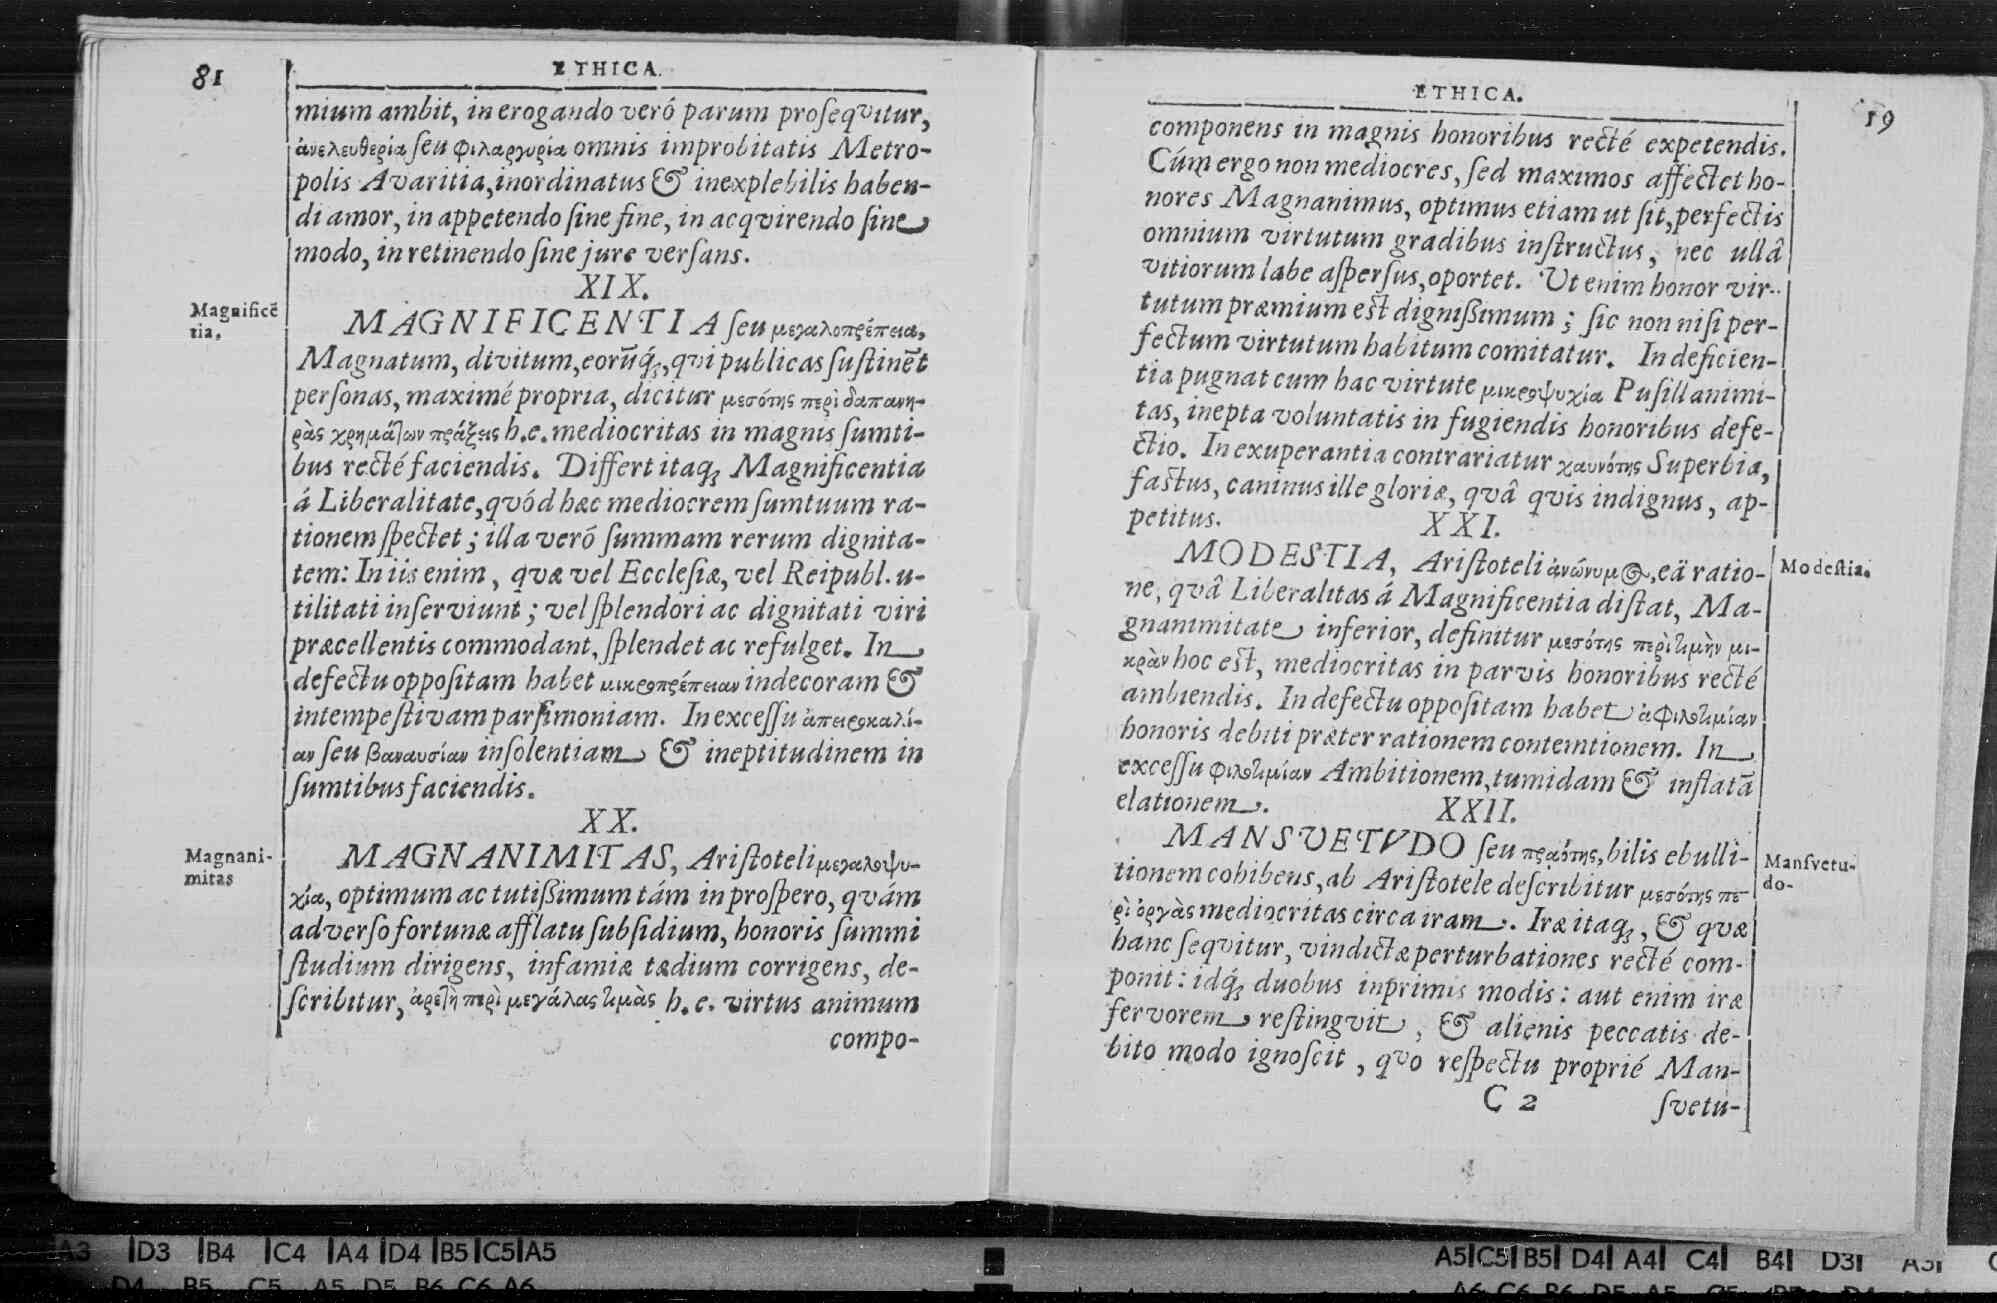 81
ETHICA.
mium ambit, in erogando veró parum proſeqvitur,
ἀνελευθερία ſeu φιλαργυρία omnis improbitatis Metro-
polis Avaritia, inordinatus & inexplebilis haben-
di amor, in appetendo ſine fine, in acqvirendo ſine
modo, in retinendo ſine jure verſans.
XIX.
Magnificē
tia,
MAGNIFICENTIA ſeu μεγαλοπρέπεια,
Magnatum, divitum, eorūq́;, qvi publicas ſuſtinēt
perſonas, maximé propria, dicitur μεσότης περὶ δαπανη-
ρὰς χρημάτων πράξεις h.e. mediocritas in magnis ſumti-
bus recté faciendis. Differt itaq; Magnificentia
á Liberalitate, qvód hæc mediocrem ſumtuum ra-
tionem ſpectet; illa veró ſummam rerum dignita-
tem: In iis enim, qvæ vel Eccleſiæ, vel Reipubl. u-
tilitati inſerviunt; vel ſplendori ac dignitati viri
præcellentis commodant, ſplendet ac refulget. In
defectu oppoſitam habet μικροπρέπειαν indecoram &
intempeſtivam parſimoniam. In exceſſu ἀπειροκαλί-
αν ſeu βαναυσίαν inſolentiam & ineptitudinem in
ſumtibus faciendis.
XX.
Magnani-
mitas
MAGNANIMITAS, Ariſtoteli μεγαλοψυ-
χία, optimum ac tutißimum tám in proſpero, qvám
adverſo fortunæ afflatu ſubſidium, honoris ſummi
ſtudium dirigens, infamiæ tædium corrigens, de-
ſcribitur, ἀρετὴ περὶ μεγάλας τιμὰς h.e. virtus animum
compo-
ETHICA.
19
componens in magnis honoribus recté expetendis.
Cúm ergo non mediocres, ſed maximos affectet ho-
nores Magnanimus, optimus etiam ut ſit, perfectis
omnium virtutum gradibus inſtructus, nec ullâ
vitiorum labe aſperſus, oportet. Ut enim honor vir-
tutum præmium eſt digniſſimum; ſic non niſi per-
fectum virtutum habitum comitatur. In deficien-
tia pugnat cum hac virtute μικροψυχία Puſillanimi-
tas, inepta voluntatis in fugiendis honoribus defe-
ctio. In exuperantia contrariatur χαυνότης Superbia,
faſtus, caninus ille gloriæ, qvâ qvis indignus, ap-
petitus.
XXI.
MODESTIA, Ariſtoteli ἀνώνυμος, eä ratio-
Modeſtia.
ne, qvâ Liberalitas á Magnificentia diſtat, Ma-
gnanimitate inferior, definitur μεσότης περὶ τιμὴν μι-
κρὰν hoc eſt, mediocritas in parvis honoribus recté
ambiendis. In defectu oppoſitam habet ἀφιλοτιμίαν
honoris debiti præter rationem contemtionem. In
exceſſu φιλοτιμίαν Ambitionem, tumidam & inflatā
elationem.
XXII.
MANSVETVDO ſeu πραότης, bilis ebulli-
Manſvetu-
do-
tionem cohibens, ab Ariſtotele deſcribitur μεσότης πε-
ρὶ ὀργὰς mediocritas circa iram. Iræ itaq;, & qvæ
hanc ſeqvitur, vindictæ perturbationes recté com-
ponit: idq́; duobus inprimis modis: aut enim iræ
fervorem reſtingvit, & alienis peccatis de-
bito modo ignoſcit, qvo reſpectu proprié Man-
C 2
ſvetu-
A3 D3 B4 C4 A4 D4 B5 C5 A5
D4 B5 C5 A5 D5 B6 C6 A6
A5 C5 B5 D4 A4 C4 B4 D3 A3
A6 C6 B6 D5 A5 C5 B5 D4